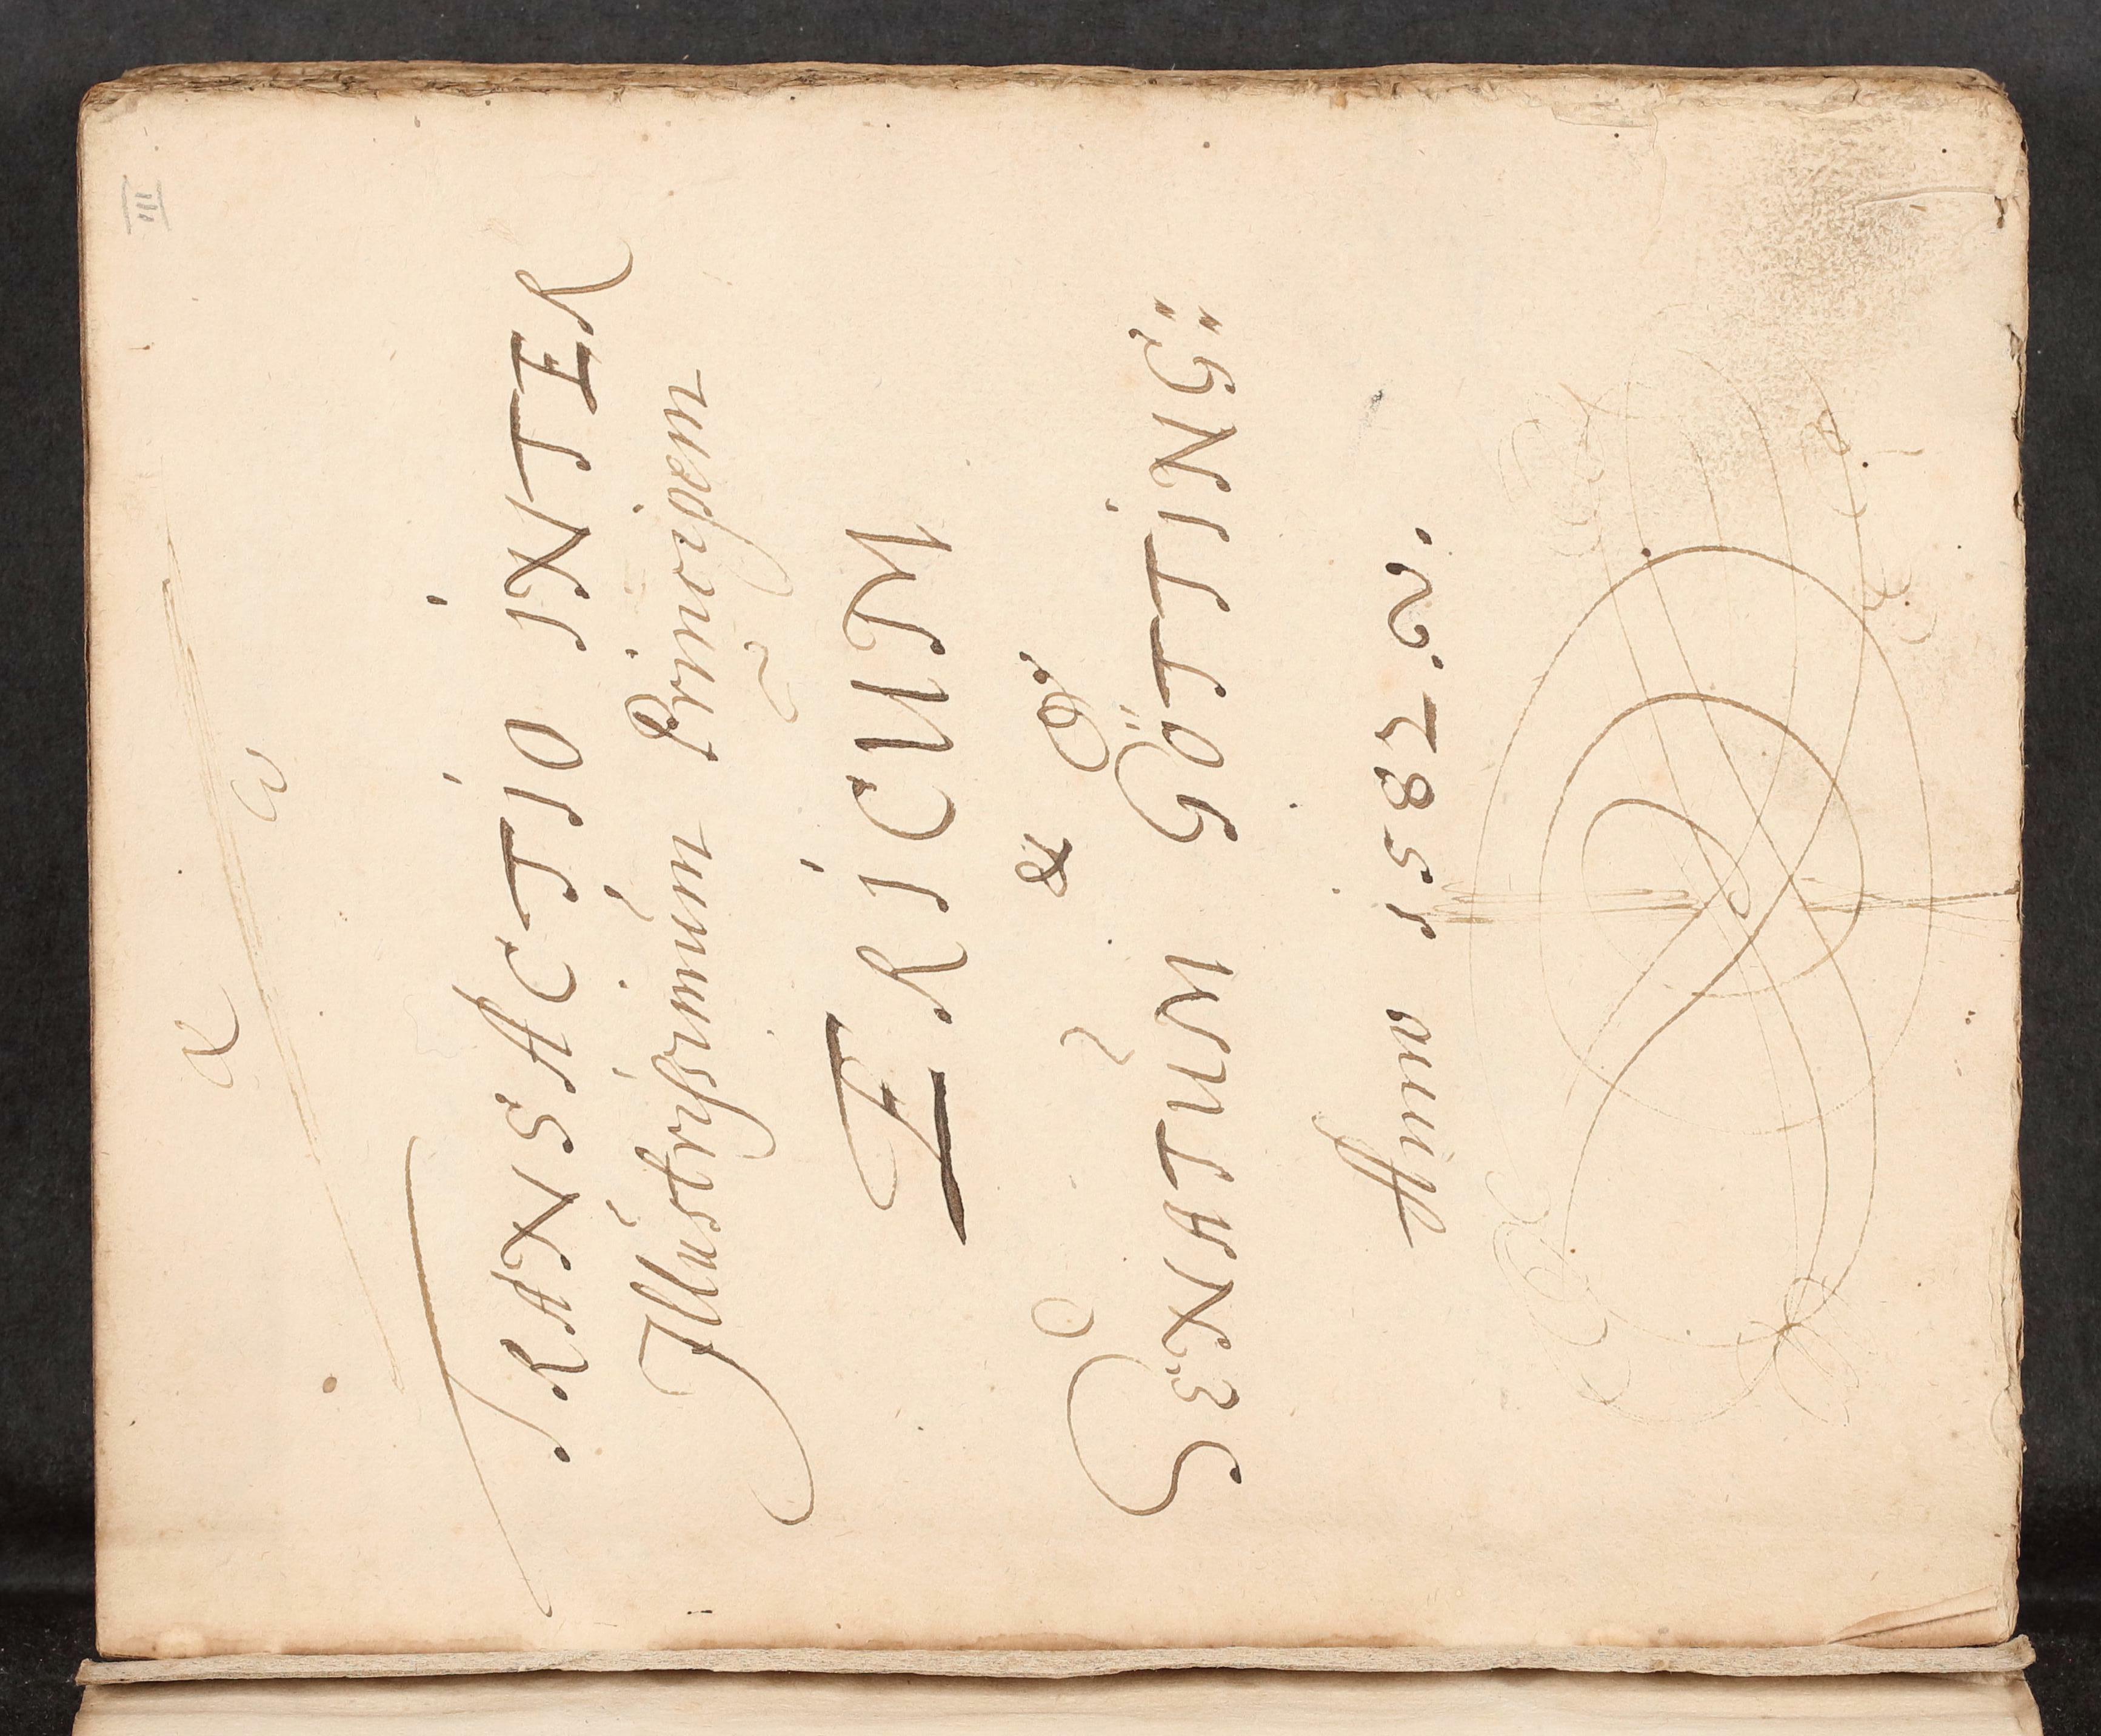 III
TRANSACTIO INTER
Illustrissimum Principem
ERICUM
&
SENATUM GÖTTING:
Anno 1582.